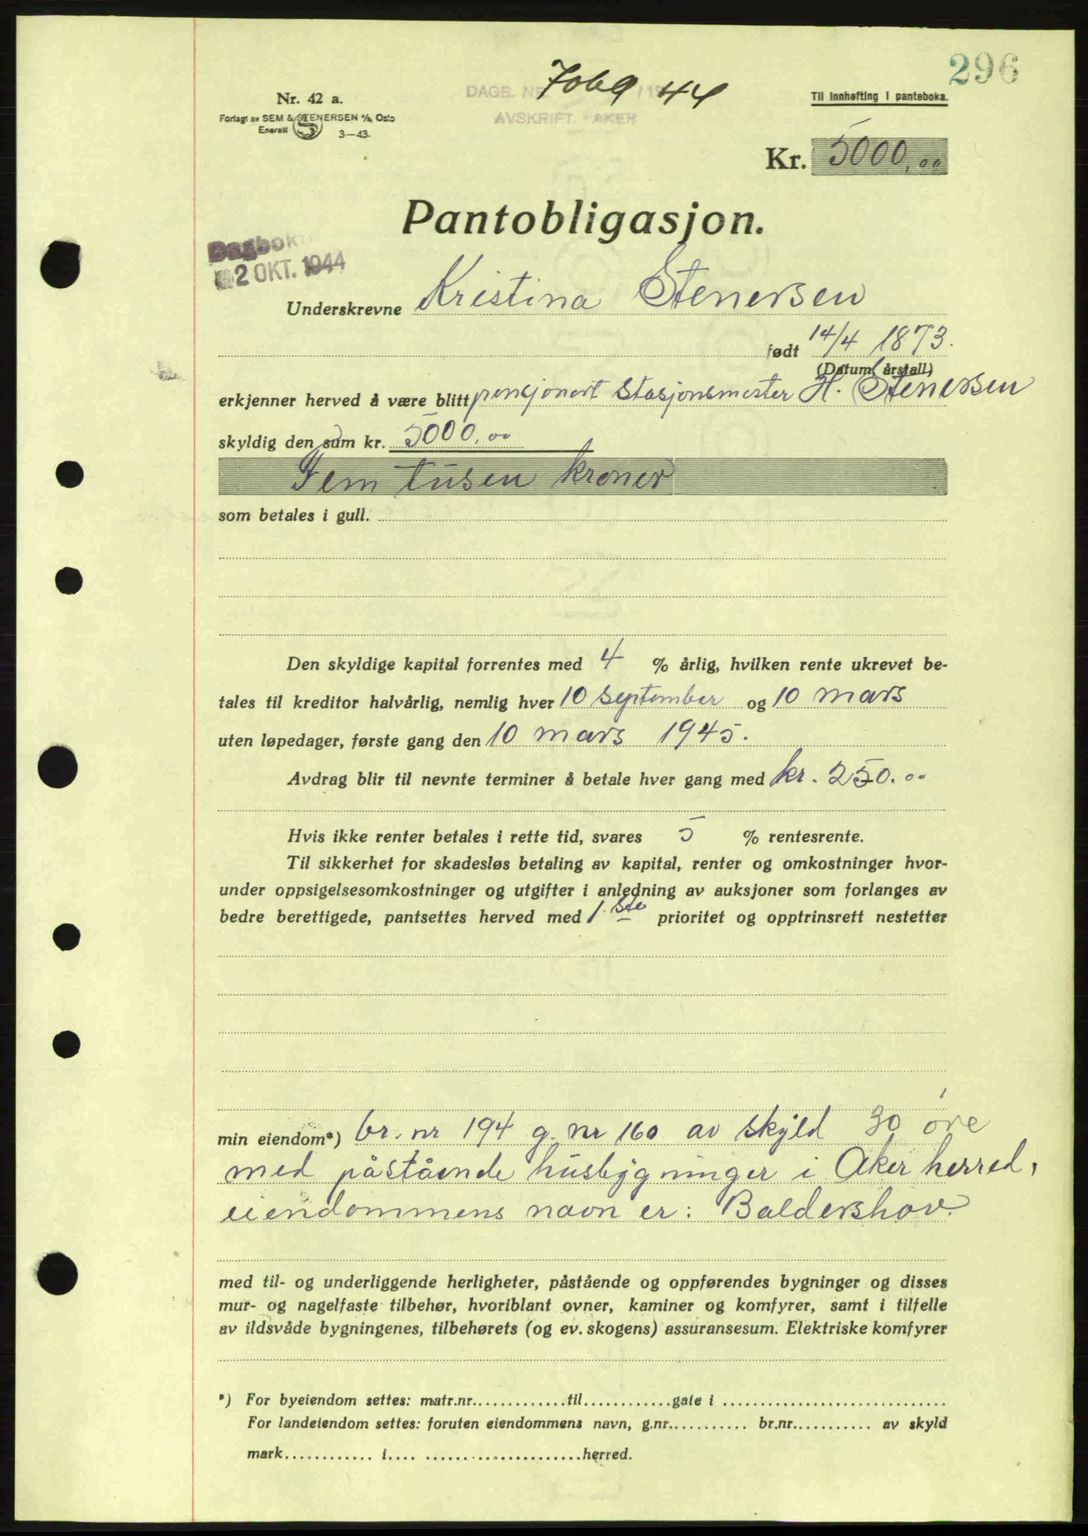 296
DAGB. NR. 7069 /19 44
AVSKRIFT. AKER
Nr. 42 a.
Forlagt av SEM & STENERSEN A/S, Oslo
Enerett S 3—43.
Til innhefting i panteboka.
Kr. 5000,00
Pantobligasjon.
Dagbok
2 OKT. 1944
Underskrevne Kristina Stenersen
født 14/4 1873.
(Datum, årstall)
erkjenner herved å være blitt pensjonert Stasjonsmester H. Stenersen
skyldig den sum kr. 5000,00
Fem tusen kroner
som betales i gull.
Den skyldige kapital forrentes med 4 % årlig, hvilken rente ukrevet be-
tales til kreditor halvårlig, nemlig hver 10 september og 10 mars
uten løpedager, første gang den 10 mars 1945.
Avdrag blir til nevnte terminer å betale hver gang med kr. 250.00
Hvis ikke renter betales i rette tid, svares 5 % rentesrente.
Til sikkerhet for skadesløs betaling av kapital, renter og omkostninger hvor-
under oppsigelsesomkostninger og utgifter i anledning av auksjoner som forlanges av
bedre berettigede, pantsettes herved med 1.ste prioritet og opptrinsrett nestetter
min eiendom*) br. nr 194 g. nr 160 av skyld 30 øre
med påstående husbygninger i Aker herred,
eiendommens navn er: Baldershov.
med til- og underliggende herligheter, påstående og oppførendes bygninger og disses
mur- og nagelfaste tilbehør, hvoriblant ovner, kaminer og komfyrer, samt i tilfelle
av ildsvåde bygningenes, tilbehørets (og ev. skogens) assuransesum. Elektriske komfyrer
*) For byeiendom settes: matr.nr.............til.............gate i ................................
For landeiendom settes: foruten eiendommens navn, g.nr........... br.nr............ av skyld
mark............. i.... .......................herred.